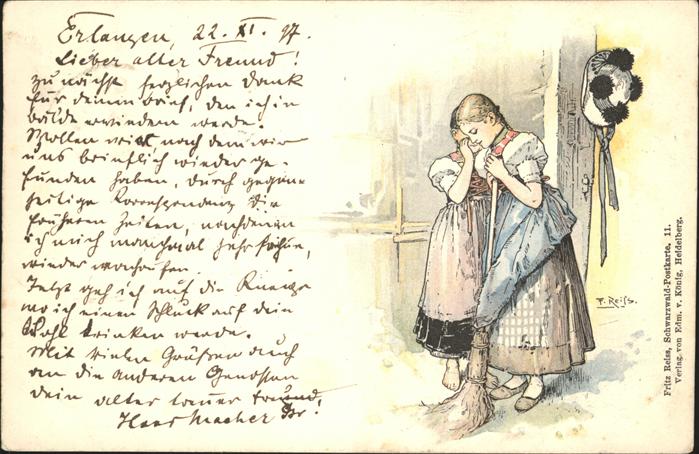 Erlangen, 22. XI. 97.
Lieber alter Freund!
zunächst herzlichen Dank
für deinen Brief, den ich in
bälde erwiedern werde.
Wollen wir nach dem wir
uns brieflich wieder ge-
funden haben, durch gegen-
seitige Korrespondenz die
früheren Zeiten, nachdenen
ich mich manchmal sehr sehne,
wieder wachrufen.
Jetzt geh ich auf die Kneipe
wo ich einen Schluck auf dein
Wohl trinken werde.
Mit vielen Grüßen auch
an die anderen Genossen
dein alter treuer Freund:
Hans Macher
F. Reiss.
Fritz Reiss, Schwarzwald-Postkarte. 11.
Verlag von Edm. v. König, Heidelberg.